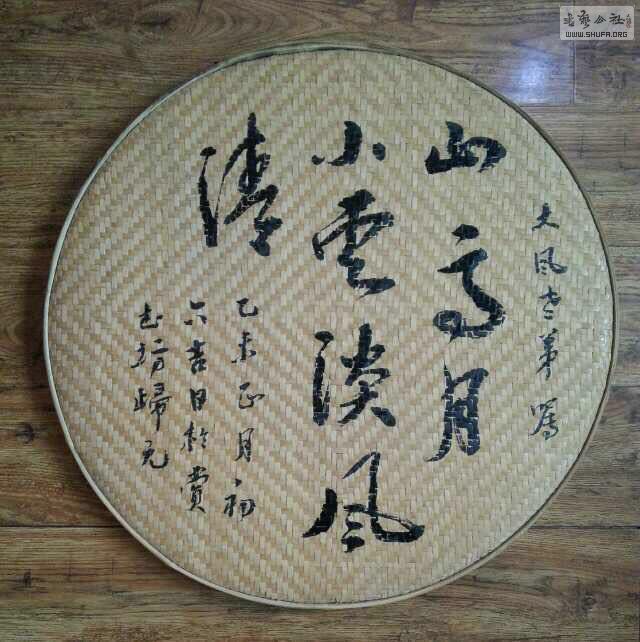 大风老弟写
山高月
小云淡风
清
乙未正月初
六吉日於赏
石坊归元
书艺公社
WWW.SHUFA.ORG